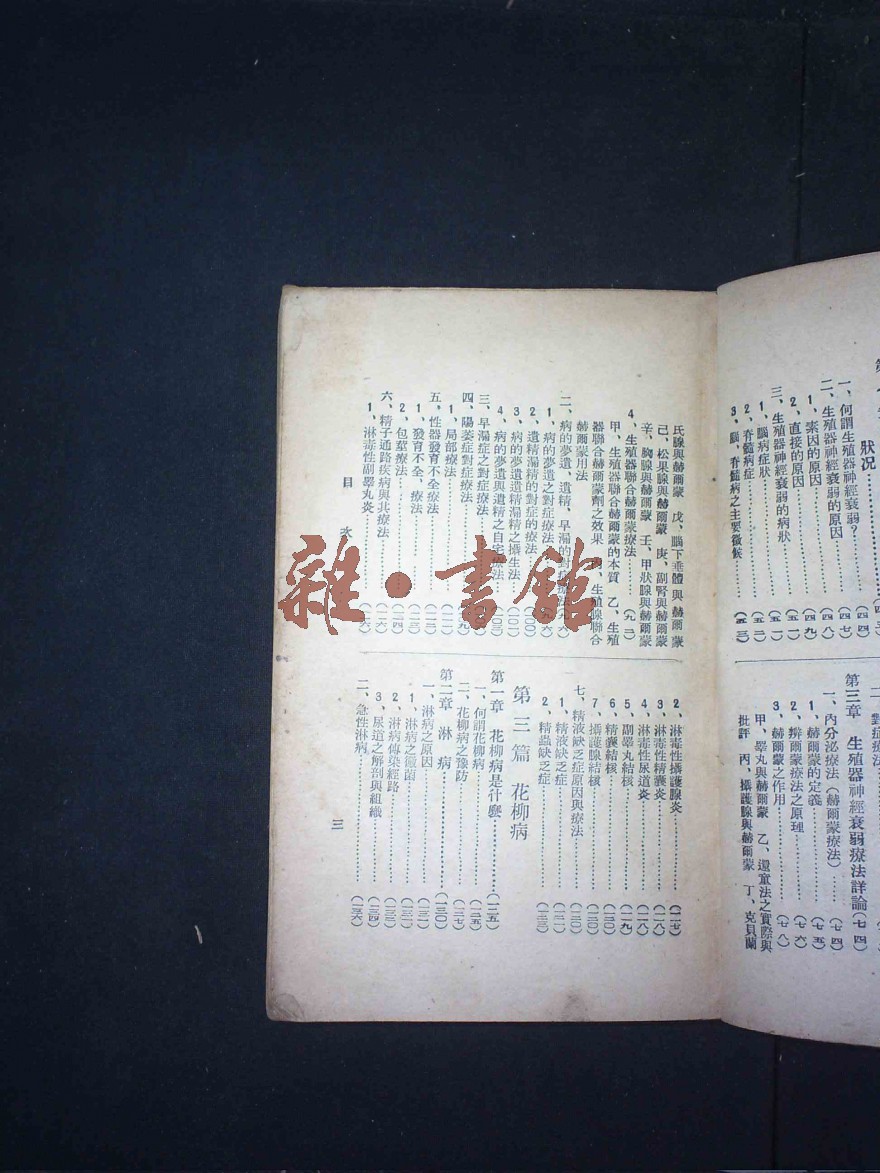 狀況
一、何謂生殖器神經衰弱?……(四四)
二、生殖器神經衰弱的原因……(四七)
1、素因的原因……(四八)
2、直接的原因……(四九)
三、生殖器神經衰弱的病狀……(五一)
1、腦病症狀……(五一)
2、脊髓病症……(五二)
3、腦、脊髓病之主要徵候……(五三)
第三章 生殖器神經衰弱療法詳論(七四)
一、內分泌療法(赫爾蒙療法)……(七四)
1、赫爾蒙的定義……(七五)
2、辨爾蒙療法之原理……(七六)
3、赫爾蒙之作用……(七八)
甲、睪丸與赫爾蒙 乙、還童法之實際與
批評 丙、攝護腺與赫爾蒙 丁、克貝蘭
氏腺與赫爾蒙 戊、腦下垂體與赫爾蒙
己、松果腺與赫爾蒙 庚、副腎與赫爾蒙
辛、胸腺與赫爾蒙 壬、甲狀腺與赫爾蒙
4、生殖器聯合赫爾蒙療法……(九二)
甲、生殖器聯合赫爾蒙的本質 乙、生殖
器聯合赫爾蒙劑之效果 生殖腺聯合
赫爾蒙用法
二、病的夢遺、遺精、早漏的對症療法
1、病的夢遺之對症療法
2、遺精漏精的對症的療法……(一〇〇)
3、病的夢遺遺精漏精之攝生法
4、病的夢遺與遺精之自宅療法
三、早漏症之對症療法
四、陽萎症對症療法
1、局部療法
五、性器發育不全療法
1、發育不全、療法
2、包莖療法
六、精子通路疾病與其療法
1、淋毒性副睪丸炎
2、淋毒性攝護腺炎……(一一七)
3、淋毒性精囊炎……(一一八)
4、淋毒性尿道炎……(一一八)
5、副睪丸結核……(一一九)
6、精囊結核……(一二〇)
7、攝護腺結核……(一二〇)
七、精液缺乏症原因與療法……(一二〇)
1、精液缺乏症
2、精蟲缺乏症
第三篇 花柳病
第一章 花柳病是什麼……(一二五)
一、何謂花柳病……(一二五)
二、花柳病之豫防……(一二七)
第二章 淋病……(一三〇)
一、淋病之原因
1、淋病之黴菌
2、淋病傳染經路
3、尿道之解剖與組織……(一三四)
二、急性淋病……(一三六)
目
三
雜·書館